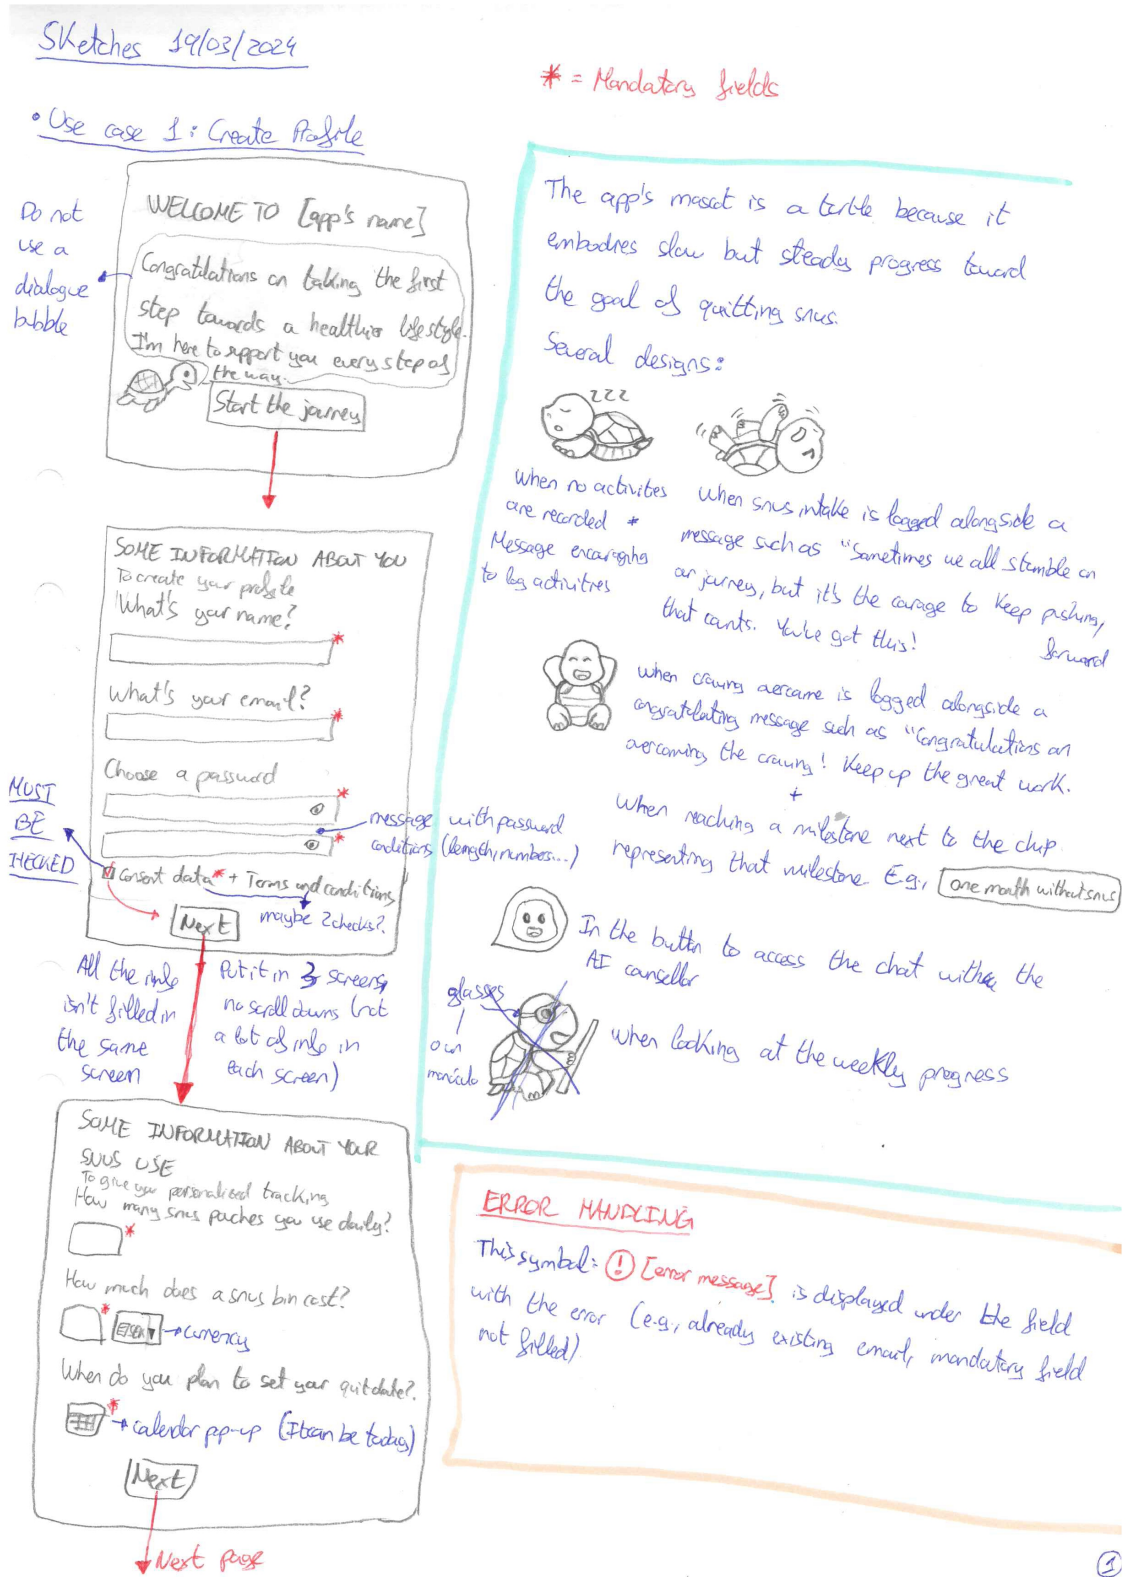 Sketches 19/03/2024
* = Mandatory fields
• Use case 1: Create Profile
Do not
use a
dialogue
bubble
WELCOME TO [app's name]
Congratulations on taking the first
step towards a healthier lifestyle.
I'm here to support you every step of
the way.
Start the journey
SOME INFORMATION ABOUT YOU
To create your profile
What's your name?
*
What's your email?
*
Choose a password
*
*
message with password
conditions (length, numbers...)
MUST
BE
CHECKED
Consent data* + Terms and conditions
maybe 2 checks?
Next
All the info
isn't filled in
the same
screen
Put it in 3 screens,
no scroll downs (not
a lot of info in
each screen)
SOME INFORMATION ABOUT YOUR
SNUS USE
To give you personalised tracking
How many snus pouches you use daily?
*
How much does a snus bin cost?
*
SEK
currency
When do you plan to set your quit date?
*
calendar pop-up (It can be today)
Next
Next page
The app's mascot is a turtle because it
embodies slow but steady progress toward
the goal of quitting snus.
Several designs:
zzz
when no activities
are recorded *
Message encouraging
to log activities
when snus intake is logged alongside a
message such as "Sometimes we all stumble on
our journey, but it's the courage to keep pushing,
forward
that counts. You've got this!
when craving overcame is logged alongside a
congratulating message such as "Congratulations on
overcoming the craving! Keep up the great work.
+
when reaching a milestone next to the chip
representing that milestone. E.g., one month without snus
In the button to access the chat with the
AI counsellor
glasses
or
monóculo
when looking at the weekly progress
ERROR HANDLING
This symbol: ! [error message] is displayed under the field
with the error (e.g., already existing email, mandatory field
not filled)
1